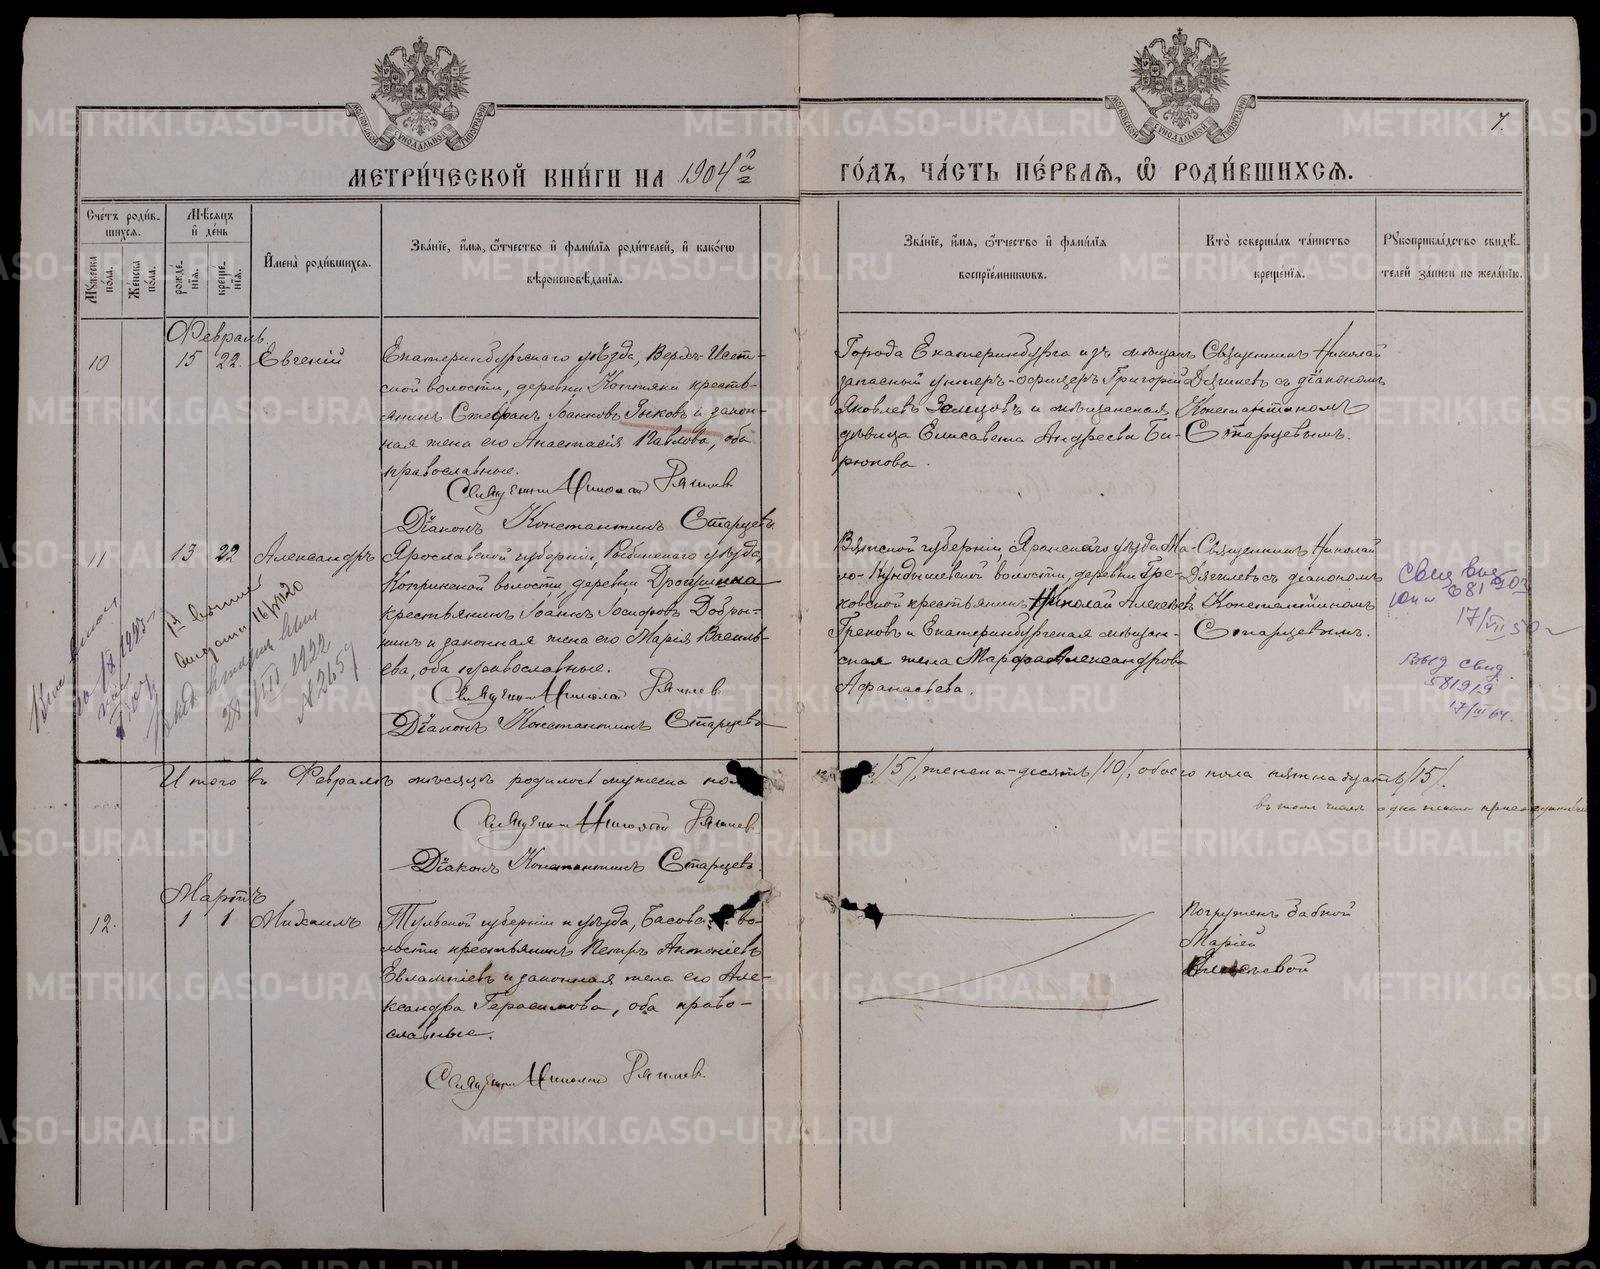 МЕТРИ́ЧЕСКОЙ КНИ́ГИ НА 1904 го́дъ, ча́сть пе́рваѧ, ѽ роди́вшихсѧ.
7.
Сче́тъ роди́в-
шихсѧ.
Мꙋжеска пола.
Же́нска пола.
Мѣ́сѧцъ и҆ де́нь
рожде́-
нїѧ.
креще́-
нїѧ.
И҆мена̀ роди́вшихсѧ.
Зва́нїе, и҆́мѧ, ѻ҆́тчество и҆ фами́лїѧ роди́телей, и҆ како́гѡ
вѣроисповѣ́данїѧ.
Зва́нїе, и҆́мѧ, ѻ҆́тчество и҆ фами́лїѧ
воспрїе́мникѡвъ.
Кто̀ соверша́лъ та́инство
креще́нїѧ.
Рꙋкоприкла́дство свидѣ́-
телей за́писи по жела́нїю.
Февраль
10
15 22.
Евгеній
Екатеринбургскаго уѣзда, Верхъ-Исет-
ской волости, деревни Коптяки кресть-
янинъ Стефанъ Іоанновъ Зыковъ и закон-
ная жена его Анастасія Павлова, оба
православные.
Священникъ Николай Дягилев
Діаконъ Константинъ Старцевъ
Города Екатеринбурга изъ мѣщанъ
запасный унтеръ-офицеръ Григорій
Яковлевъ Земцовъ и мѣщанская
дѣвица Елисавета Андреева Би-
рюкова.
Священникъ Николай
Дягилевъ съ діакономъ
Константиномъ
Старцевымъ.
11
13 22
Александръ
Ярославской губерніи, Рыбинскаго уѣзда,
Копринской волости, деревни
крестьянинъ Іоаннъ Іосифовъ Добры-
нинъ и законная жена его Марія Василь-
ева, оба православные.
Священникъ Николай Дягилев
Діаконъ Константинъ Старцевъ
Вятской губерніи, Яранскаго уѣзда Ма-
ло-Кундышевской волости, деревни Гре-
ковской крестьянинъ Николай Алексѣевъ
Грековъ и Екатеринбургская мѣщан-
ская жена Марфа Александрова
Афанасьева.
Священникъ Николай
Дягилевъ съ діакономъ
Константиномъ
Старцевымъ.
28/VIII 1922
№ 2657
17/VII 50
выд свид.
581919
17/III 64.
Итого въ Февралѣ мѣсяцѣ родилось мужеска по
/5/, женска-десять /10/, обоего пола пятнадцать /15/.
въ томъ числѣ одна
Священникъ Николай Дягилев
Діаконъ Константинъ Старцевъ.
Мартъ
12.
1 1
Михаилъ
Тульской губерніи и уѣзда, Басовской во-
лости крестьянинъ Петръ Антоніевъ
Евлампіевъ и законная жена его Але-
ксандра Герасимова, оба право-
славные.
Священникъ Николай Дягилев.
Погруженъ бабкой
Маріей